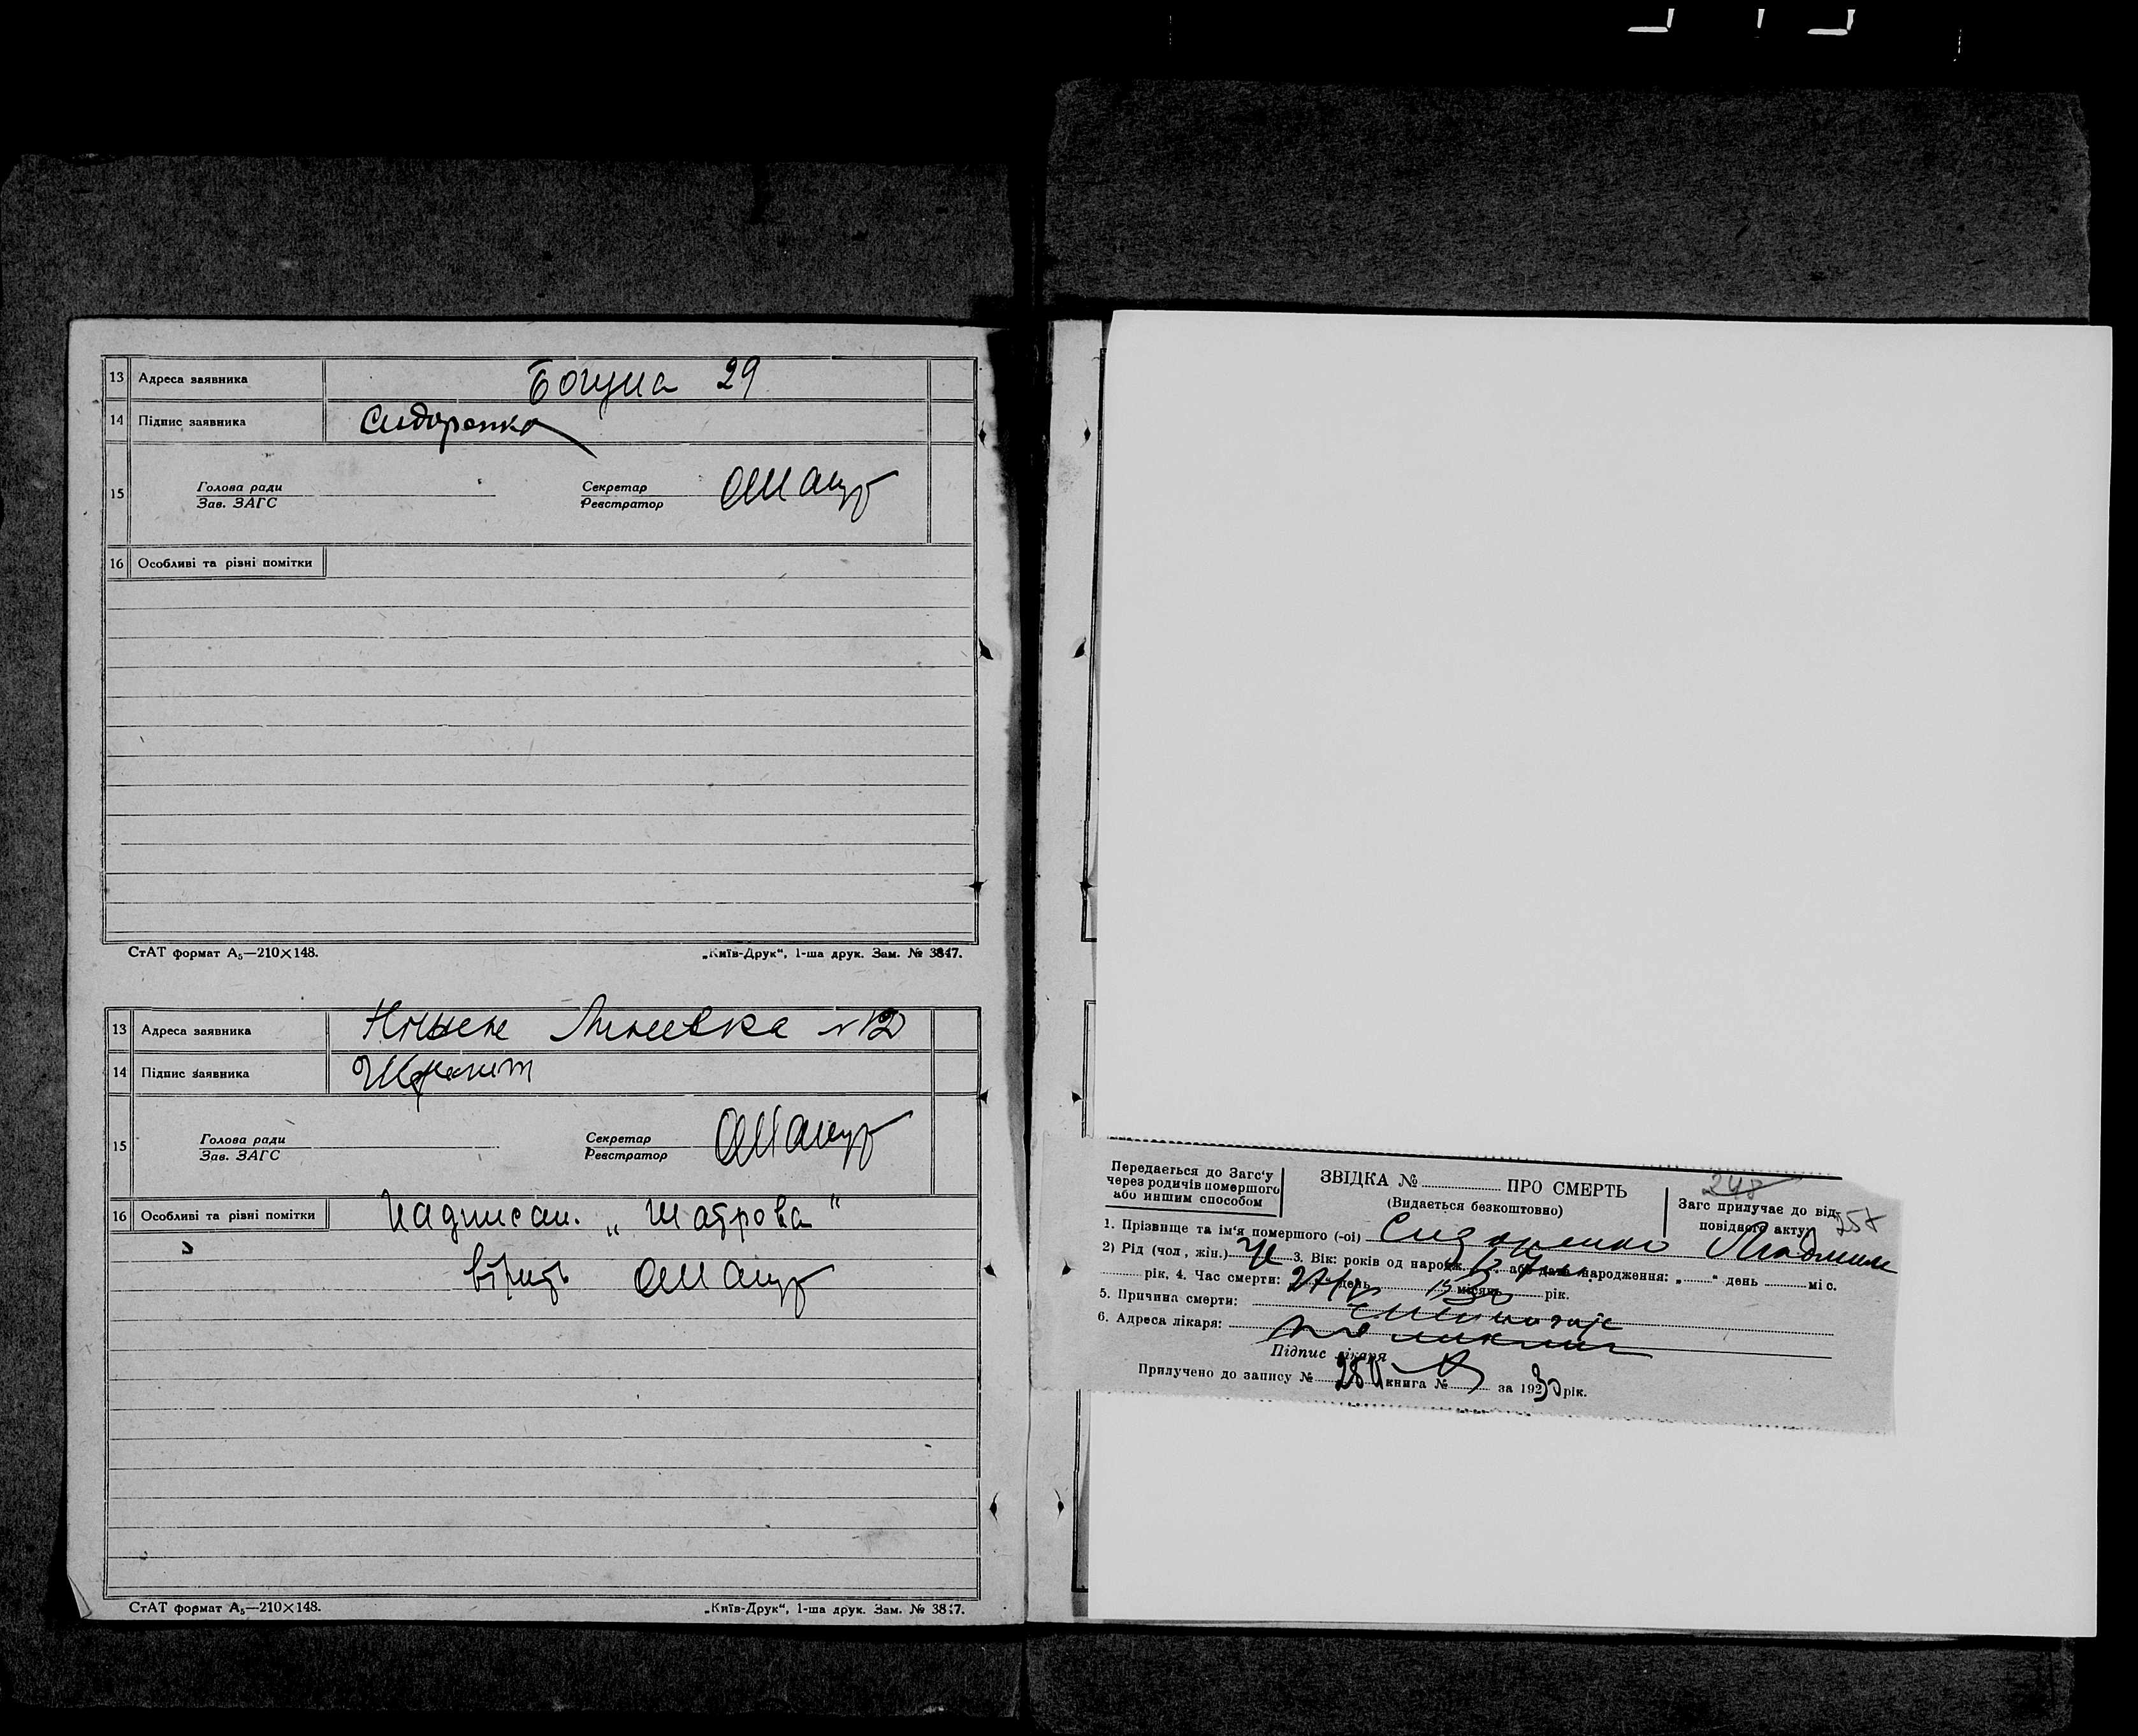 13 Адреса заявника Богуна 29
14 Підпис заявника Сидоренко
15 Голова ради Секретар
Зав. ЗАГС Реєстратор
16 Особливі та різні помітки
СтАТ формат А5—210×148. „Київ-Друк“, 1-ша друк. Зам. № 3847.
13 Адреса заявника №12
14 Підпис заявника
15 Голова ради Секретар
Зав. ЗАГС Реєстратор
16 Особливі та різні помітки Надписан. „Шатрова“
вірить
СтАТ формат А5—210×148. „Київ-Друк“, 1-ша друк. Зам. № 3847.
Передається до Загс'у
через родичів помершого
або иншим способом
ЗВІДКА № ПРО СМЕРТЬ
(Видається безкоштовно)
248
Загс прилучає до від-
повідного акту
257
1. Прізвище та ім'я помершого (-ої) Сидоренко Людмила
2) Рід (чол, жін.) ж 3. Вік: років од народж. або дата народження: „ “ день міс.
рік, 4. Час смерти: день місяць рік.
5. Причина смерти:
6. Адреса лікаря:
Підпис лікаря
Прилучено до запису № книга № за 1930 рік.